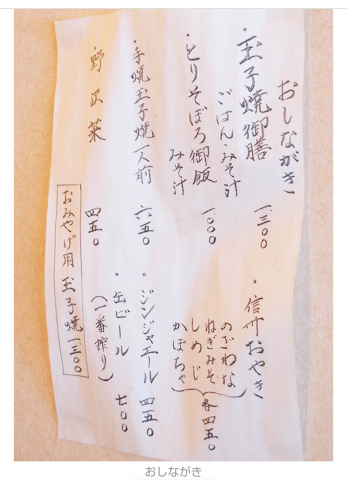 おしながき
・玉子焼御膳 一三〇〇
ごはん・みそ汁
・とりそぼろ御飯 一〇〇〇
みそ汁
・手焼玉子焼一人前 六五〇
・野沢菜 四五〇
おみやげ用玉子焼 一三〇〇
・信州おやき
のざわな
ねぎみそ
しめじ
かぼちゃ
各四五〇
・ジンジャエール 四五〇
・缶ビール 七〇〇
(一番搾り)
おしながき